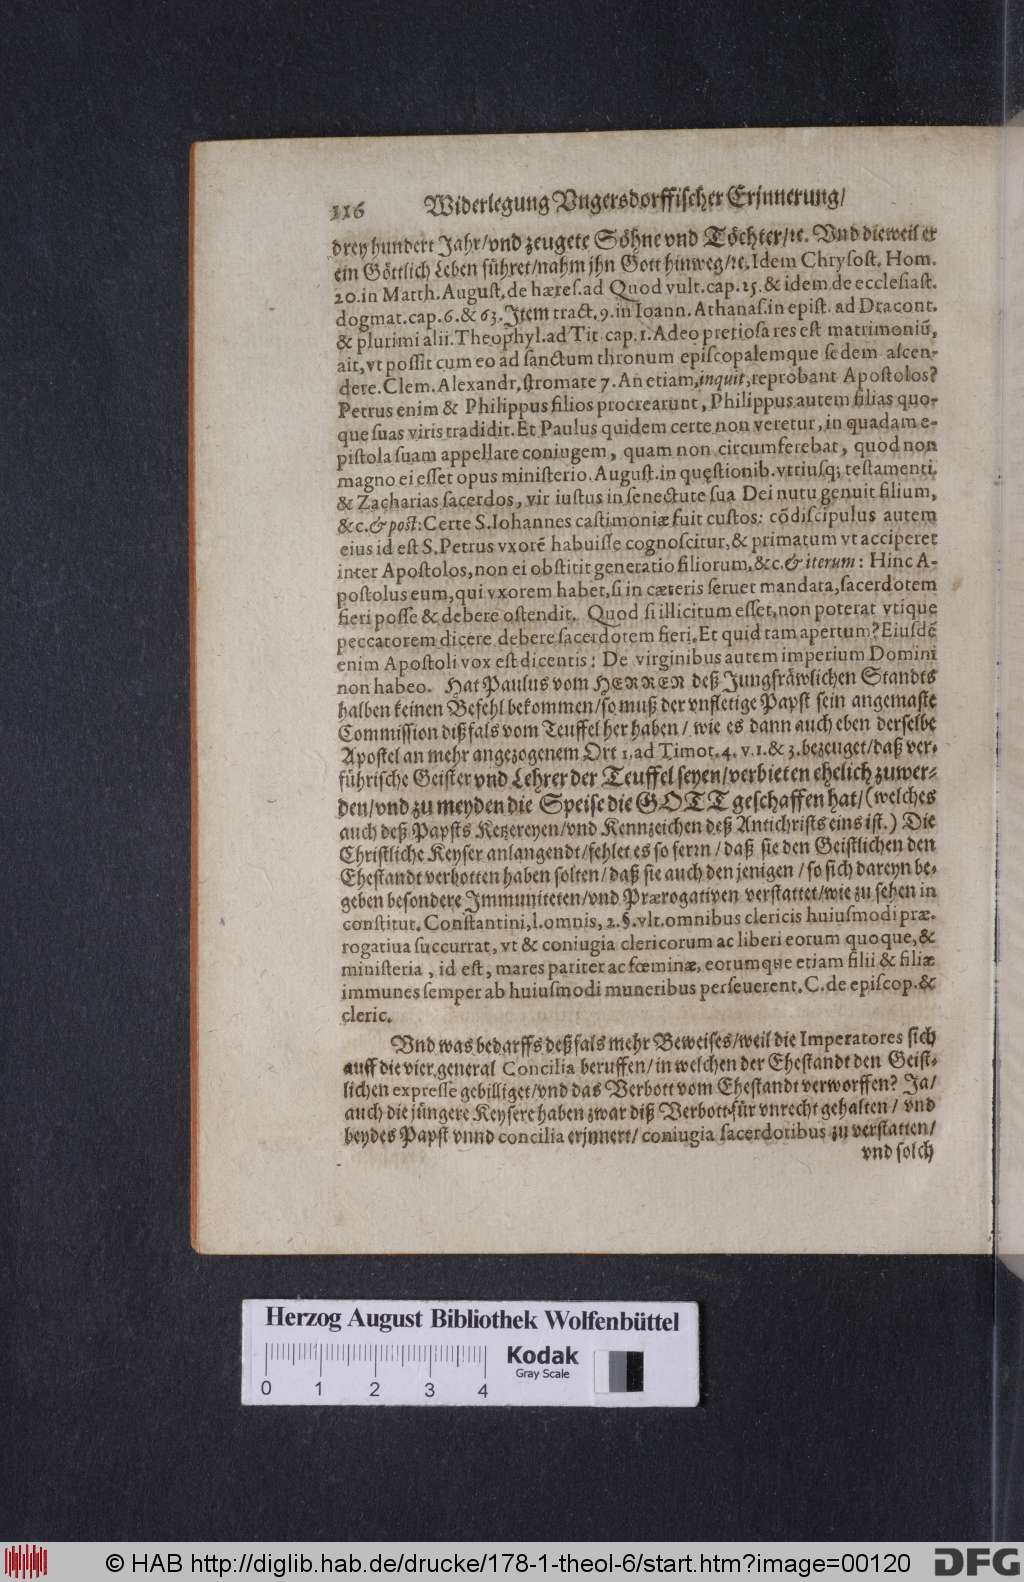 116 Widerlegung Vngersdorffischer Erjnnerung/
drey hundert Jahr/vnd zeugete Söhne vnd Töchter/ꝛc. Vnd dieweil er
ein Göttlich Leben führet/nahm jhn Gott hinweg/ꝛc. Idem Chrysost. Hom.
20. in Matth. August. de hæres. ad Quod vult. cap. 25. & idem de ecclesiast.
dogmat. cap. 6. & 63. Item tract. 9. in Ioann. Athanas. in epist. ad Dracont.
& plurimi alii. Theophyl. ad Tit. cap. 1. Adeo pretiosa res est matrimoniũ,
ait, vt possit cum eo ad sanctum thronum episcopalemque sedem ascen-
dere. Clem. Alexandr. stromate 7. An etiam, inquit, reprobant Apostolos?
Petrus enim & Philippus filios procrearunt, Philippus autem filias quo-
que suas viris tradidit. Et Paulus quidem certe non veretur, in quadam e-
pistola suam appellare coniugem, quam non circumferebat, quod non
magno ei esset opus ministerio. August. in quęstionib. vtriusq; testamenti.
& Zacharias sacerdos, vir iustus in senectute sua Dei nutu genuit filium,
&c. & post: Certe S. Iohannes castimoniæ fuit custos: cõdiscipulus autem
eius id est S. Petrus vxorẽ habuisse cognoscitur, & primatum vt acciperet
inter Apostolos, non ei obstitit generatio filiorum, &c. & iterum: Hinc A-
postolus eum, qui vxorem habet, si in cæteris seruet mandata, sacerdotem
fieri posse & debere ostendit. Quod si illicitum esset, non poterat vtique
peccatorem dicere debere sacerdotem fieri. Et quid tam apertum? Eiusdẽ
enim Apostoli vox est dicentis: De virginibus autem imperium Domini
non habeo. Hat Paulus vom HERREN deß Jungfräwlichen Standts
halben keinen Befehl bekommen/so muß der vnfletige Papst sein angemaste
Commission dißfals vom Teuffel her haben/ wie es dann auch eben derselbe
Apostel an mehr angezogenem Ort 1. ad Timot. 4. v. 1. & 3. bezeuget/daß ver-
führische Geister vnd Lehrer der Teuffel seyen/verbieten ehelich zuwer-
den/vnd zu meyden die Speise die GOTT geschaffen hat/(welches
auch deß Papsts Ketzereyen/vnd Kennzeichen deß Antichrists eins ist.) Die
Christliche Keyser anlangendt/fehlet es so ferrn/ daß sie den Geistlichen den
Ehestandt verbotten haben solten/ daß sie auch den jenigen/ so sich dareyn be-
geben besondere Immuniteten/vnd Prærogativen verstattet/wie zu sehen in
constitut. Constantini, l. omnis, 2. §. vlt. omnibus clericis huiusmodi præ-
rogatiua succurrat, vt & coniugia clericorum ac liberi eorum quoque, &
ministeria, id est, mares pariter ac fœminæ, eorumque etiam filii & filiæ
immunes semper ab huiusmodi muneribus perseuerent. C. de episcop. &
cleric.
Vnd was bedarffs deßfals mehr Beweises/weil die Imperatores sich
auff die vier general Concilia beruffen/ in welchen der Ehestandt den Geist-
lichen expresse gebilliget/vnd das Verbott vom Ehestandt verworffen? Ja/
auch die jüngere Keysere haben zwar diß Verbott für vnrecht gehalten/ vnd
beydes Papst vnnd concilia erjnnert/ coniugia sacerdotibus zu verstatten/
vnd solch
Herzog August Bibliothek Wolfenbüttel
Kodak
Gray Scale
0 1 2 3 4
© HAB http://diglib.hab.de/drucke/178-1-theol-6/start.htm?image=00120
DFG